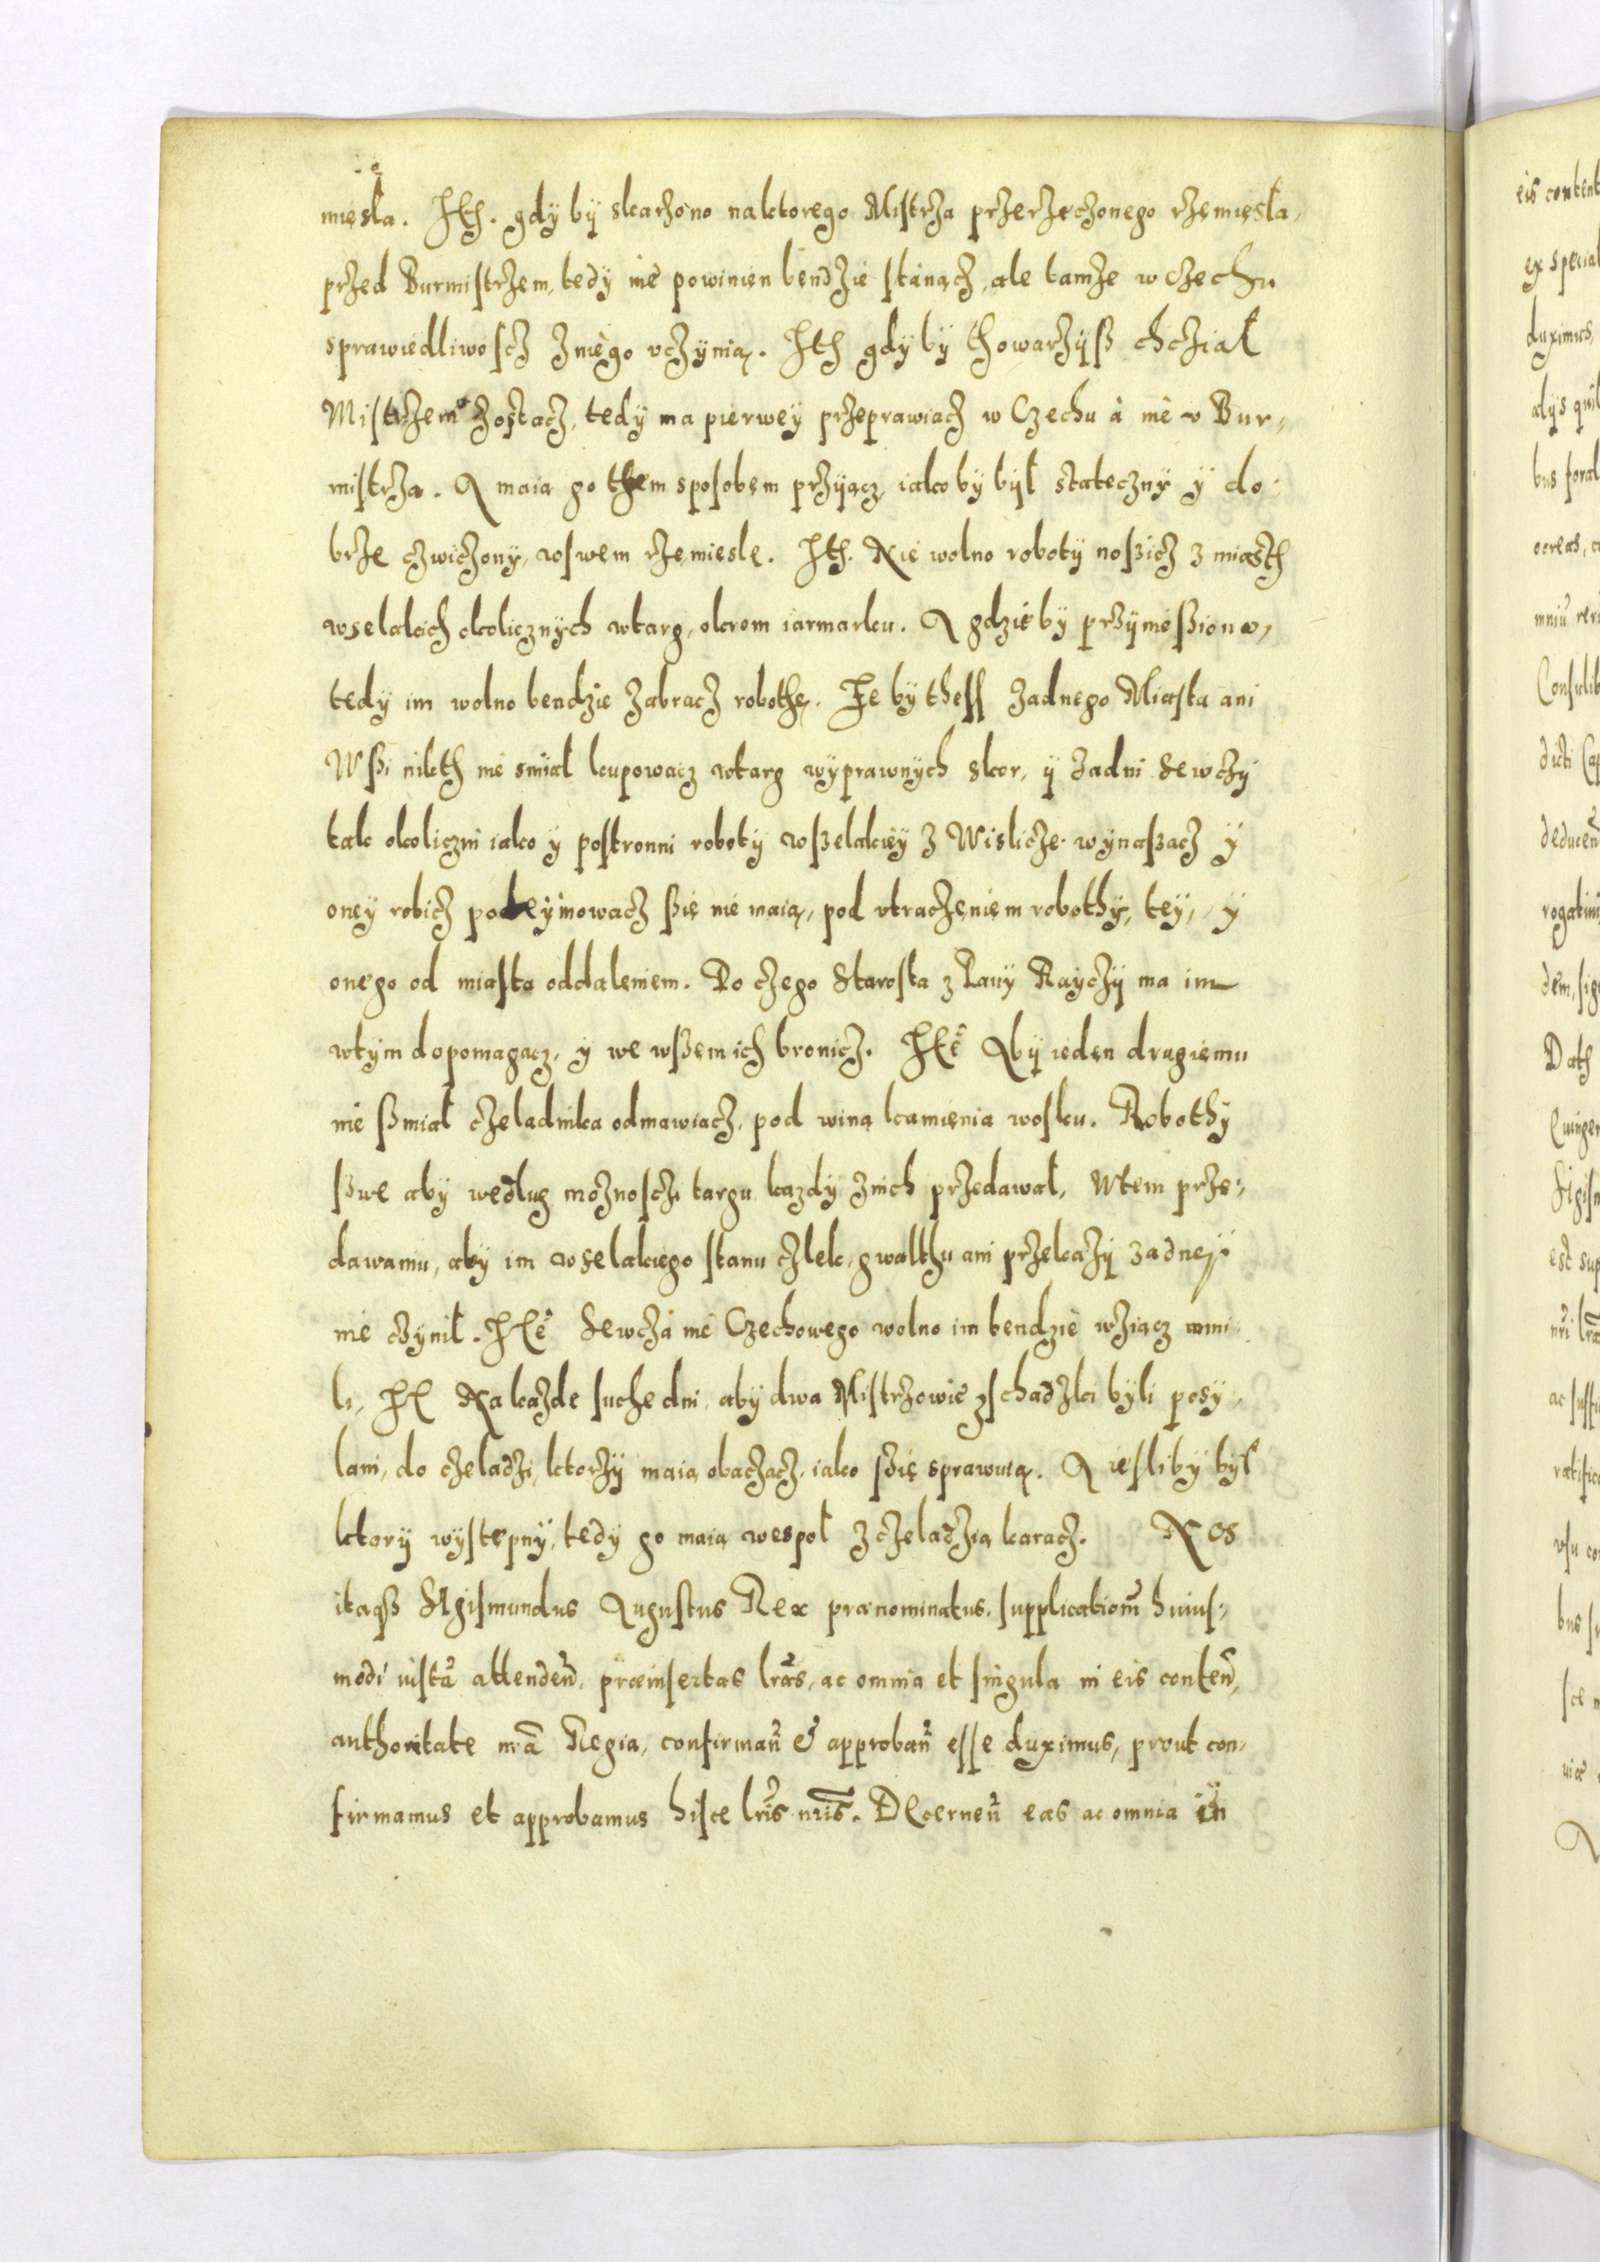 mięsła. Ith. gdÿ bÿ skarżono na ktorego Mistrza przerzeczonego rzemięsła,
przed Burmistrzem, tedÿ nie powinien bendzie stanącz, ale tamże w czechu
sprawiedliwoscz zniego vczÿnią. Ith gdÿ bÿ thowarzÿß chcział
Mistrzem zostacz, tedÿ ma pierweÿ przeprawiacz w Czechu à nie v Bur-
mistrza. A maią go them sposobem przÿącz, iako bÿ bÿł stateczny y do-
brze czwiczonÿ, wswem rzemiesle. Ith. Nie wolno robotÿ nosicz z miasth
wselakich okolicznÿch wtarg, okrom iarmarku. A gdzie bÿ przÿnießiono,
tedÿ im wolno bendzie zabracz robothę. Ze bÿ theß żadnego Miasta ani
Wßi nikth nie smiał kupowacz wtarg wÿprawnÿch skor, ÿ żadni Sewczÿ
tak okoliczni iako y postronni robotÿ wßelakieÿ z Wislicze wÿnaßacz ÿ
oneÿ robicz podeÿmowacz ßię nie maią, pod vtraczęniem robothÿ, teÿ, ÿ
onego od miasta oddaleniem. Do czego Starosta z Panÿ Raÿczÿ ma im
wtÿm dopomagacz, ÿ we wßem ich bronicz. Ite Abÿ ieden drugiemu
nie ßmiał czeladnika odmawiacz, pod winą kamięnia wosku. Robothÿ
ßwe abÿ według możnoscżi targu każdÿ znich przedawał, Wtem prze-
dawaniu, abÿ im wselakiego stanu człek, gwalthu ani przekażÿ żadneÿ
nie czÿnił. Ite Sewcża nie Czechowego wolno im bendzie wziącz wmi-
li, It Na każde suche dni, abÿ dwa Mistrzowie zschadzki bÿli posÿ-
lani, do czeladzi, ktorzÿ maią obaczacz, iako ßię sprawuią. A iesli bÿ bÿł
ktorÿ wÿstępnÿ, tedÿ go maią wespoł z czeladzią karacz. Nos
itaqß Sigismundus Augustus Rex prænominatus, supplicationi huius-
modi iusta attenden, præinsertas lras, ac omnia et singula in eis conten,
authoritate nra Regia, confirman & approban esse duximus, prout con-
firmamus et approbamus hisce lris nris. Decernen eas ac omnia in